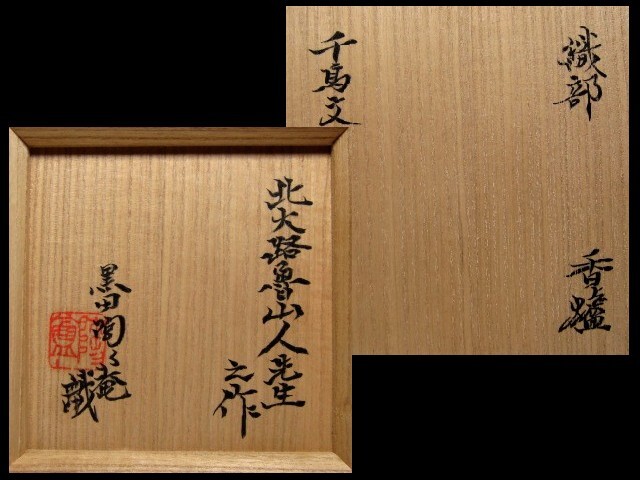 織部
香爐
千鳥文
北大路魯山人先生
之作
黒田陶々庵
識